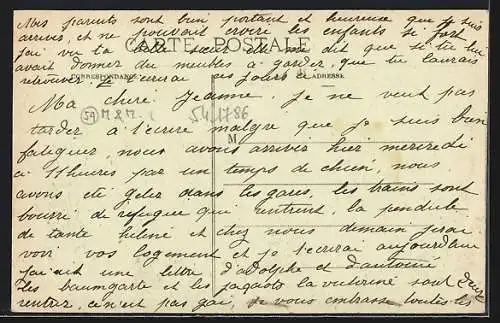 Mes parents sont bien portant et heureuse que je suis
arrivés, et ne pouvait croire les enfants si fort
j'ai vu ta belle soeur elle me dit que si tu lui
CARTE POSTALE
avait donner du meubles a garder, que tu l'aurais
retrouver. Je t'écrirai ces jours ci.
CORRESPONDANCE
ADRESSE
Ma chère Jeanne, je ne veut pas
54 M & M. 541786
tarder a t'écrire malgre que je suis bien
M
fatiguer, nous avons arriver hier mercredi
a 11 heures par un temps de chien, nous
avons été geler dans les gares, les trains sont
bourré de refugier qui rentrent, la pendule
de tante hélène et chez nous demain j'irai
voir vos logement et je t'écrirai aujourd'hui
j'ai uit une lettre d'adolphe et d'antoine
les baumgarte et les jagaoto la voisine sont deux
rentrer, ce n'est pas gai, je vous embrasse toutes les